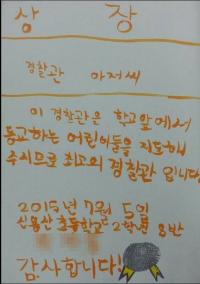 상 장
경찰관 아저씨
이 경찰관은 학교앞에서
등교하는 어린이들을 지도해
주시므로 최고의 경찰관 입니다
2015년 7월 5일
신용산 초등학교 2학년 8반
감사합니다!